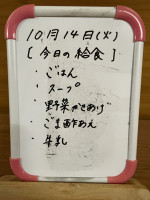 10月14日(火)
[今日の給食]
・ごはん
・スープ
・野菜かきあげ
・ごま酢あえ
・牛乳